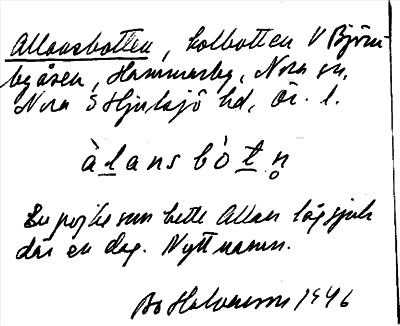 Allansbotten, kolbotten V Björn-
begåsen, Hammarby, Nora sn,
Nora o Hjulsjö hd, Ör. l.
àlansbòtn̥
En pojke som hette Allan låg sjuk
där en dag. Nytt namn.
Bo Halvarsson 1946